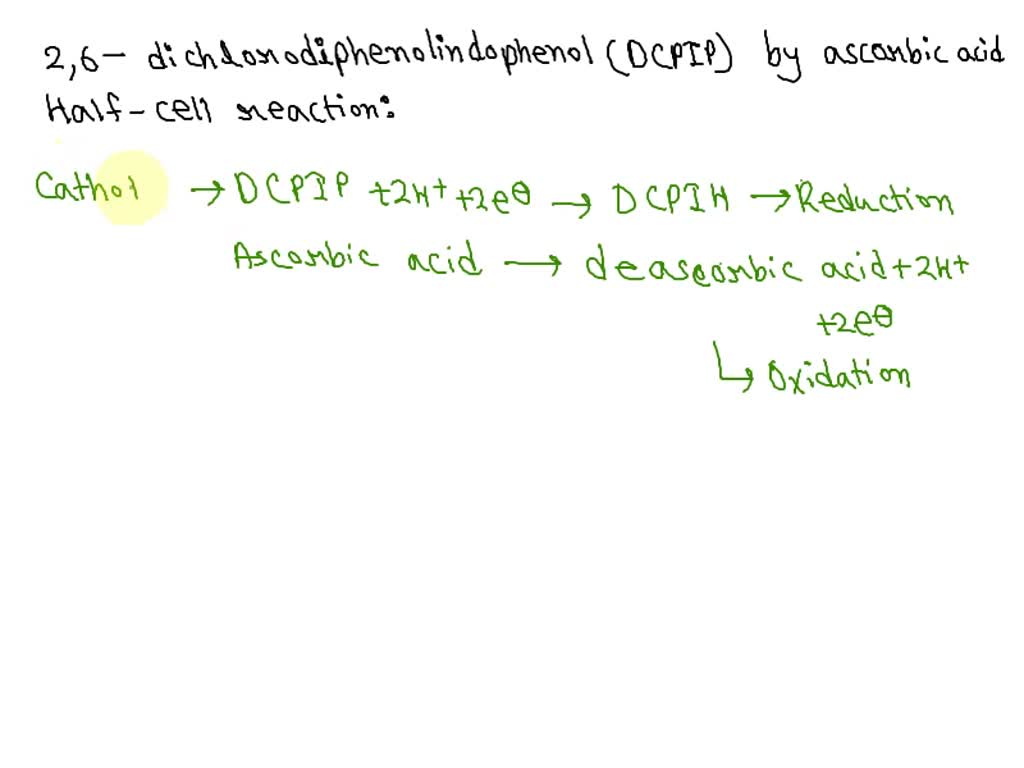 2,6- dichlorodiphenolindophenol (DCPIP) by ascorbic acid
Half-cell reaction:
Cathol → DCPIP +2H⁺ +2e⊖ → DCPIH → Reduction
Ascorbic acid → deascorbic acid +2H⁺
+2e⊖
↳ Oxidation